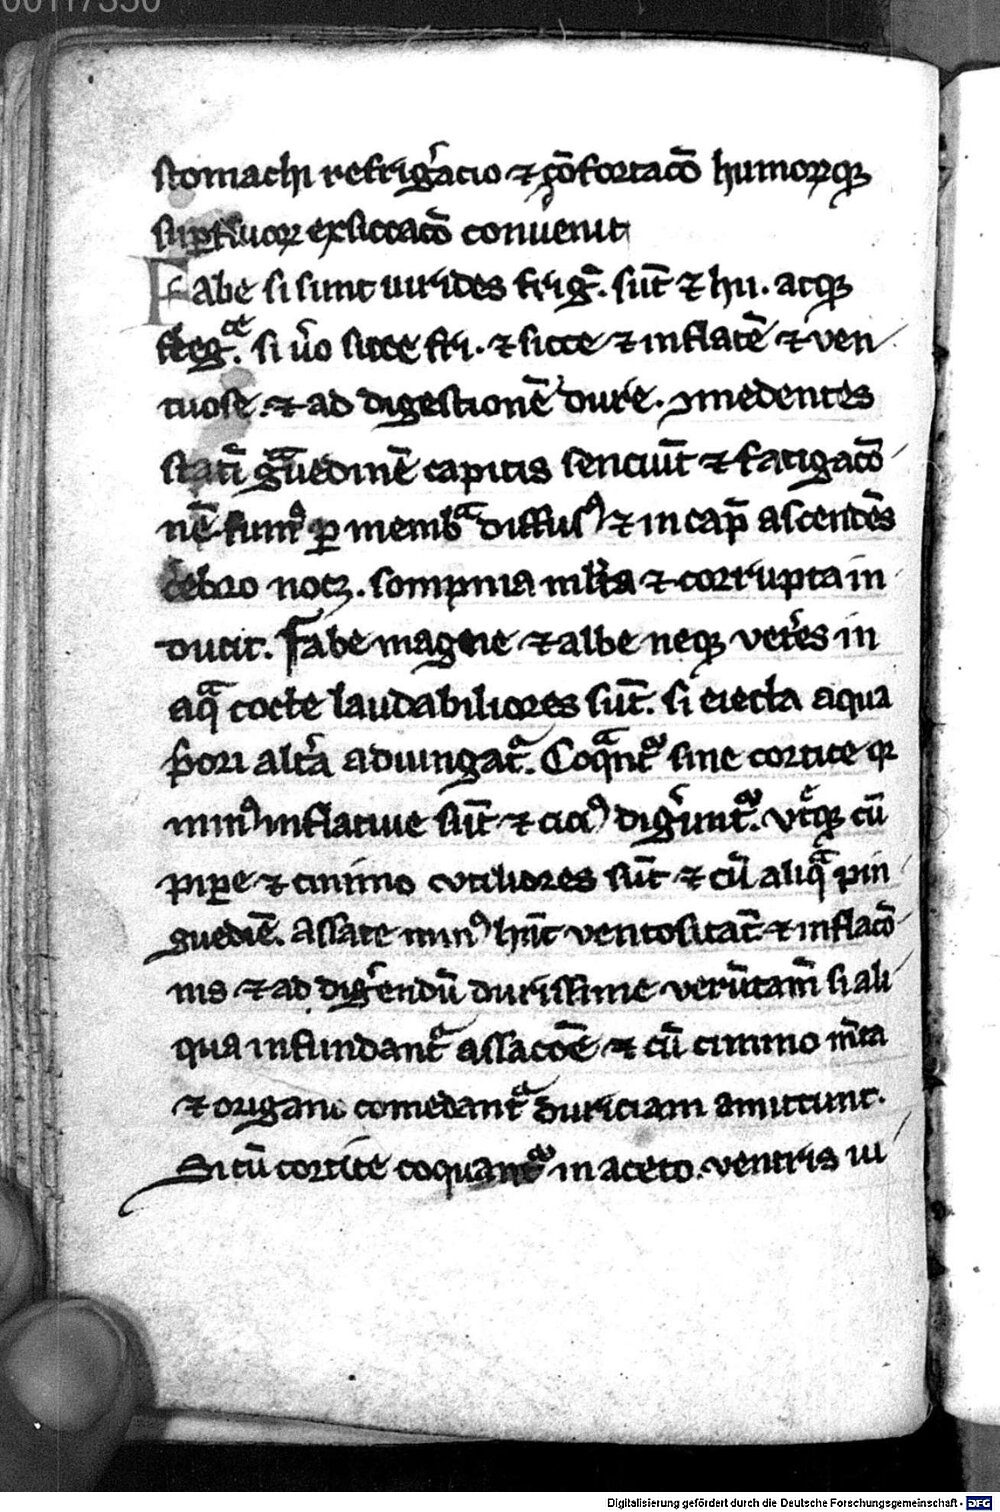 stomachi refrigͥacio ⁊ ꝯ̨fortac̄o humoꝝqꝫ
suꝑfluoꝝ exsiccac̄o conuenit
Fabe si sunt uirides frigͥ. sūt ⁊ hu. atqꝫ
flegͨᵉ. si ūo sicce fri. ⁊ sicce ⁊ inflatē ⁊ ven
tuose. ⁊ ad digestionē dure. ꝯmedentes
statī gͣuedinē capitis senciūt ⁊ fatigac̄o
nē. fumꝰ ꝑ membͣ diffusꝰ ⁊ in cap̄ ascendēs
cebro nocꝫ. sompnia ml̄ta ⁊ corrupta in
ducit. Fabe magne ⁊ albe neqꝫ vetͥes in
aqͣ cocte laudabiliores sūt. si eiecta aqua
p̄ori altͥa adiungatͬ. Coqͣntᷣ sine cortice qꝛ
minꝰ inflatiue sūt ⁊ cicꝰ digͥuntᷣ. vtͥqꝫ cū
pipe ⁊ cimino vtiliores sūt ⁊ cū aliqͣ pin
guediē. Assate minꝰ hn̄t ventositat̄ ⁊ inflac̄o
nis ⁊ ad digͥendū durissime verūtam̄ si ali
qua infundantͬ assac̄oē ⁊ cū cimino m̄ta
⁊ origano comedantͬ duriciam amittunt.
Si cū cortice coquantᷣ in aceto. ventris ui
Digitalisierung gefördert durch die Deutsche Forschungsgemeinschaft - DFG